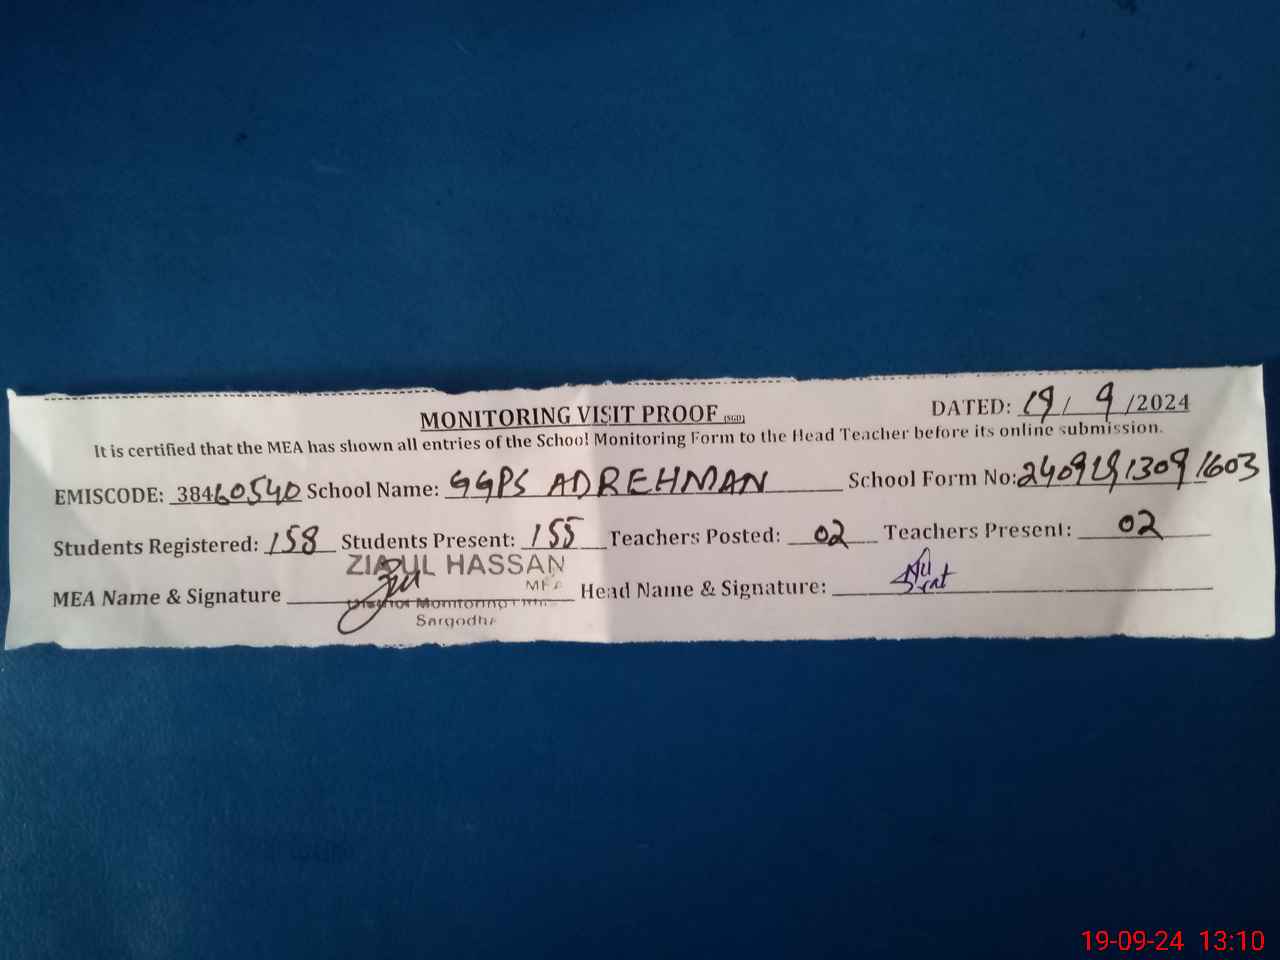 MONITORING VISIT PROOF (SGD) DATED: 19/ 9 /2024
It is certified that the MEA has shown all entries of the School Monitoring Form to the Head Teacher before its online submission.
EMISCODE: 38460540 School Name: GGPS ADREHMAN School Form No: 24091913091603
Students Registered: 158 Students Present: 155 Teachers Posted: 02 Teachers Present: 02
ZIA UL HASSAN
MEA
MEA Name & Signature Head Name & Signature:
District Monitoring Office
Sargodha
19-09-24 13:10